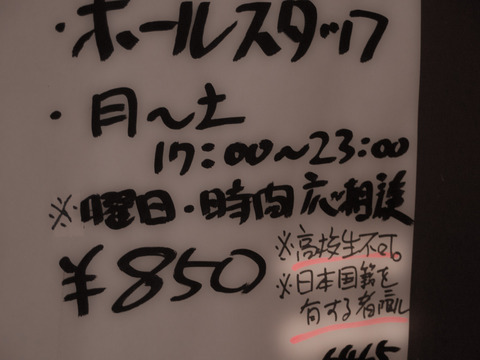 ・ホールスタッフ
・月〜土
17:00〜23:00
※曜日・時間応相談
¥850
※高校生不可。
※日本国籍を
有する者限ル